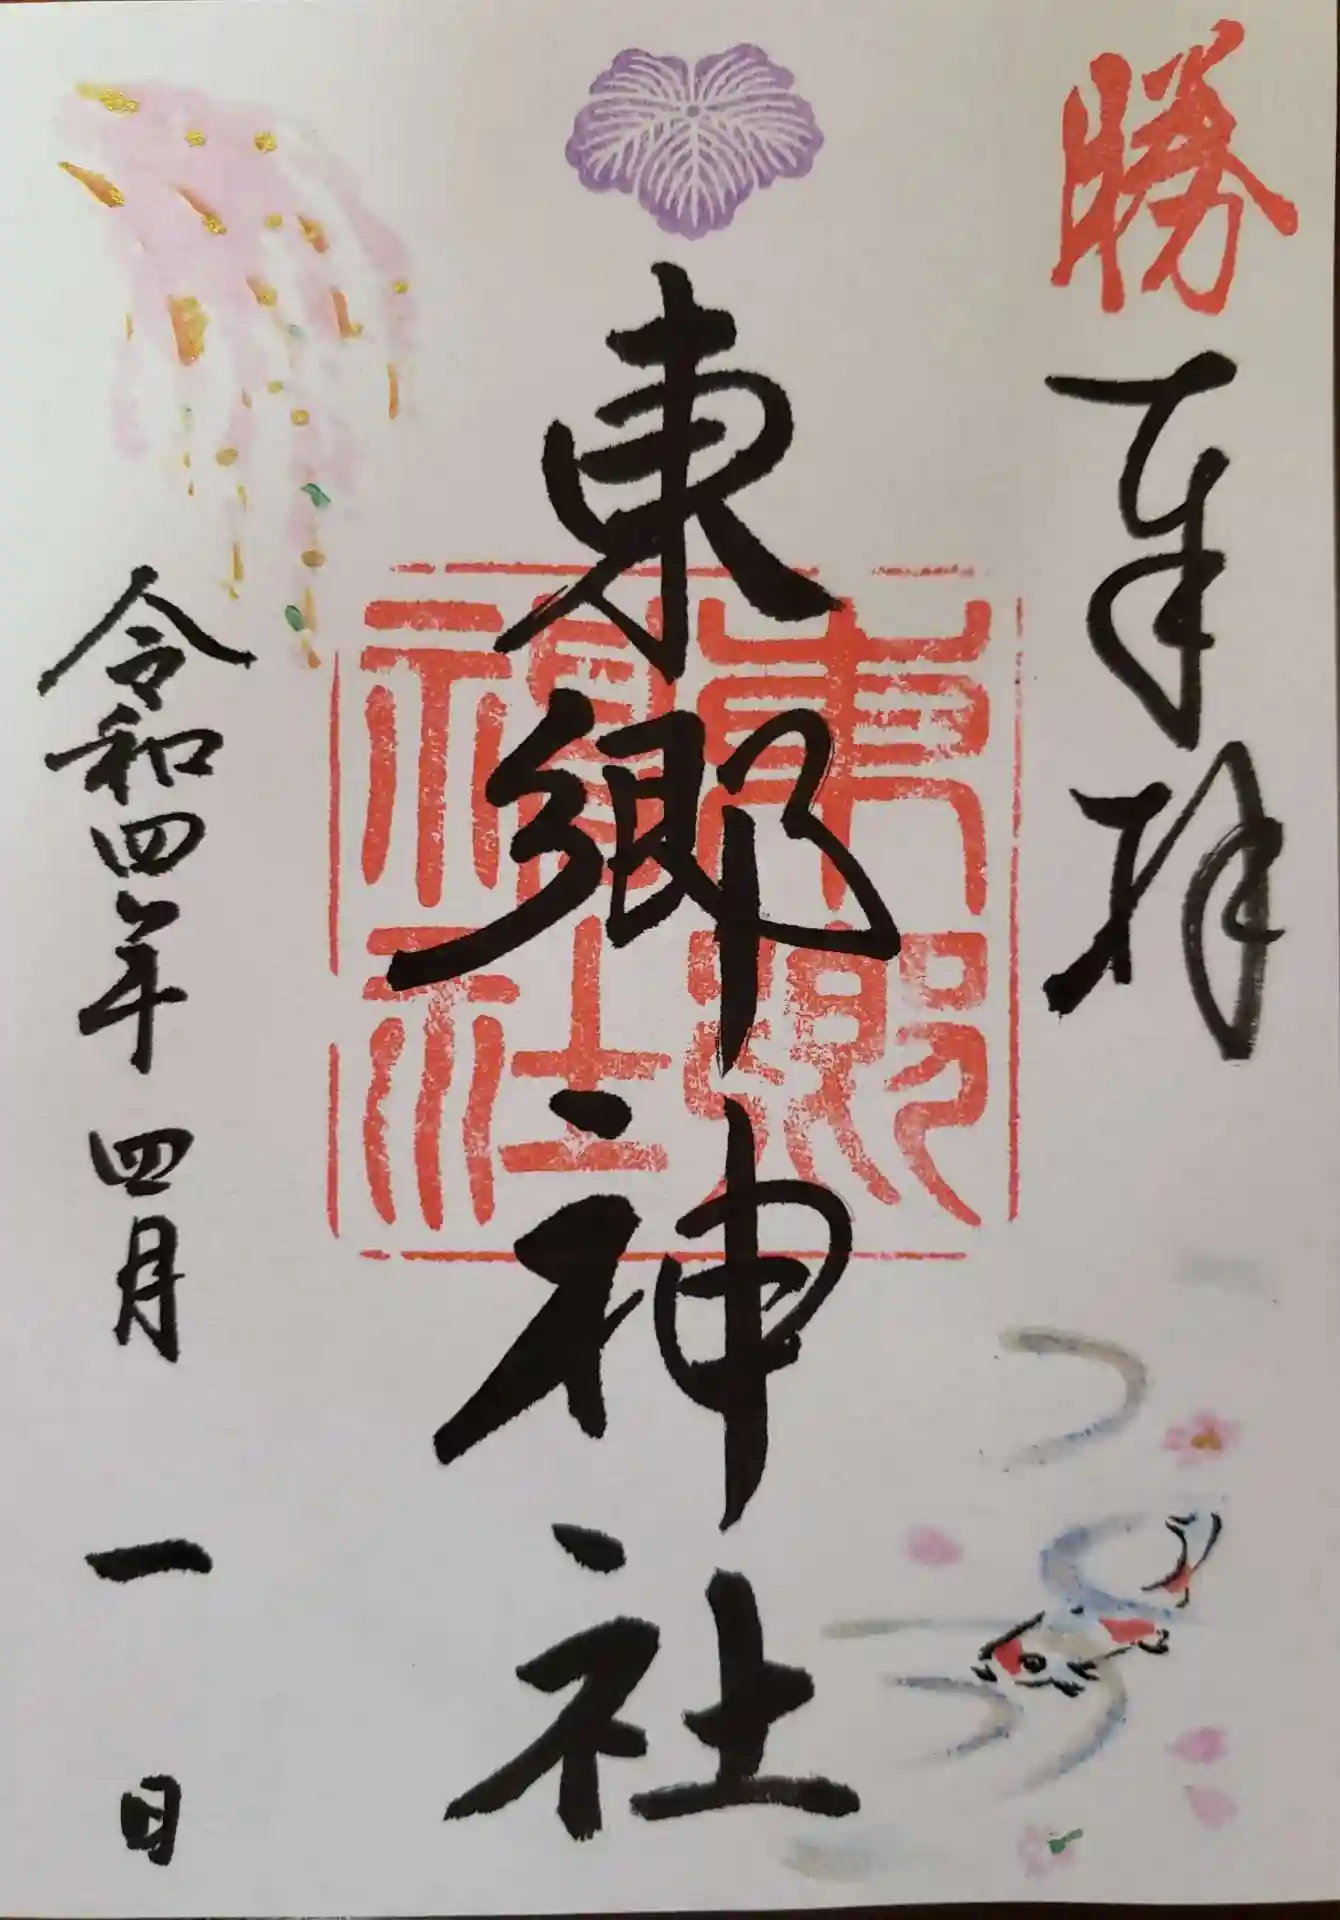 勝
奉拝
東郷神社
東郷
神社
令和四年四月一日